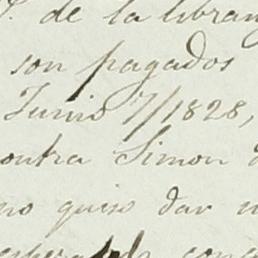 de la libran
son pagados
Junio 7/1828,
ontra Simon
no quiso dar